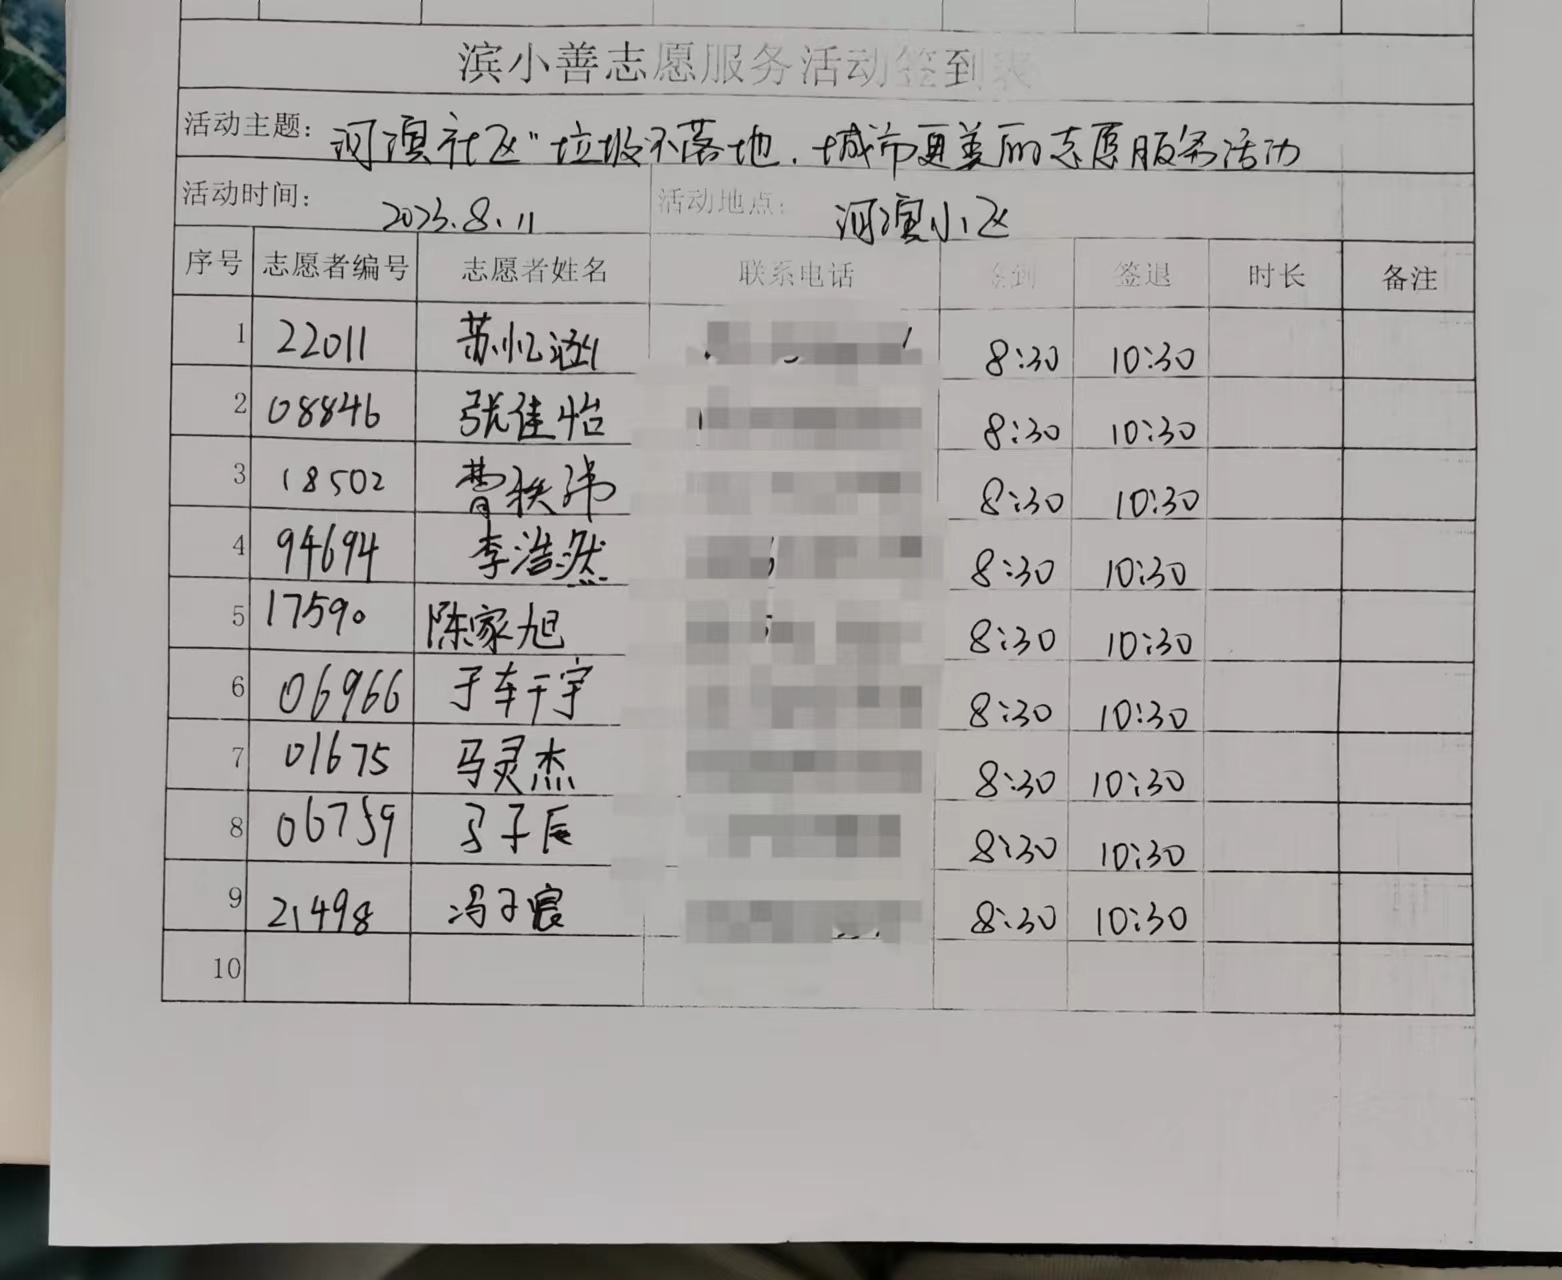 滨小善志愿服务活动签到表
活动主题: 河滨社区"垃圾不落地，城市更美丽志愿服务活动
活动时间: 2023.8.11 活动地点: 河滨小区
序号 志愿者编号 志愿者姓名 联系电话 签到 签退 时长 备注
1 22011 苏忆涵 8:30 10:30
2 08846 张佳怡 8:30 10:30
3 18502 曹秩玮 8:30 10:30
4 94694 李浩然 8:30 10:30
5 17590 陈家旭 8:30 10:30
6 06966 于车干宇 8:30 10:30
7 01675 马灵杰 8:30 10:30
8 06759 马子辰 8:30 10:30
9 21498 冯子宸 8:30 10:30
10